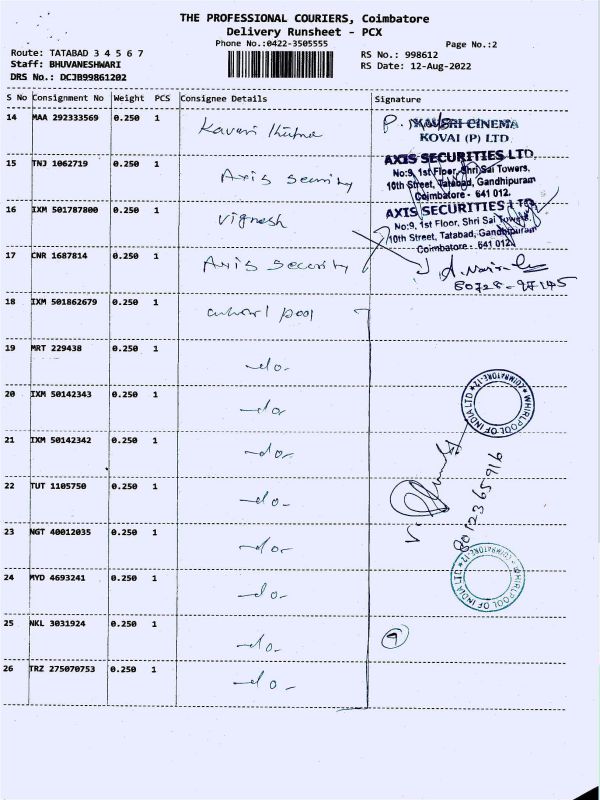 THE PROFESSIONAL COURIERS, Coimbatore
Delivery Runsheet - PCX
Phone No.:0422-3505555
Page No.:2
Route: TATABAD 3 4 5 6 7
Staff: BHUVANESHWARI
DRS No.: DCJB99861202
RS No.: 998612
RS Date: 12-Aug-2022
S No Consignment No Weight PCS Consignee Details Signature
14 MAA 292333569 0.250 1 Kaveri
P.
KAVERI CINEMA
KOVAI (P) LTD
15 TNJ 1062719 0.250 1 Axis security
AXIS SECURITIES LTD,
No:9, 1st Floor, Shri Sai Towers,
10th Street, Tatabad, Gandhipuram
Coimbatore - 641 012.
16 IXM 501787800 0.250 1 Vignesh
AXIS SECURITIES LTD
No:9, 1st Floor, Shri Sai Towers,
10th Street, Tatabad, Gandhipuram
Coimbatore - 641 012.
17 CNR 1687814 0.250 1 Axis security
80728-97145
18 IXM 501862679 0.250 1 pool
19 MRT 229438 0.250 1 -do-
20 IXM 50142343 0.250 1 -do-
WHIRLPOOL OF INDIA LTD * COIMBATORE-12 *
21 IXM 50142342 0.250 1 -do-
22 TUT 1105750 0.250 1 -do-
8012365916
23 NGT 40012035 0.250 1 -do-
24 MYD 4693241 0.250 1 -do-
WHIRLPOOL OF INDIA LTD * COIMBATORE-12 *
25 NKL 3031924 0.250 1 -do-
9
26 TRZ 275070753 0.250 1 -do-